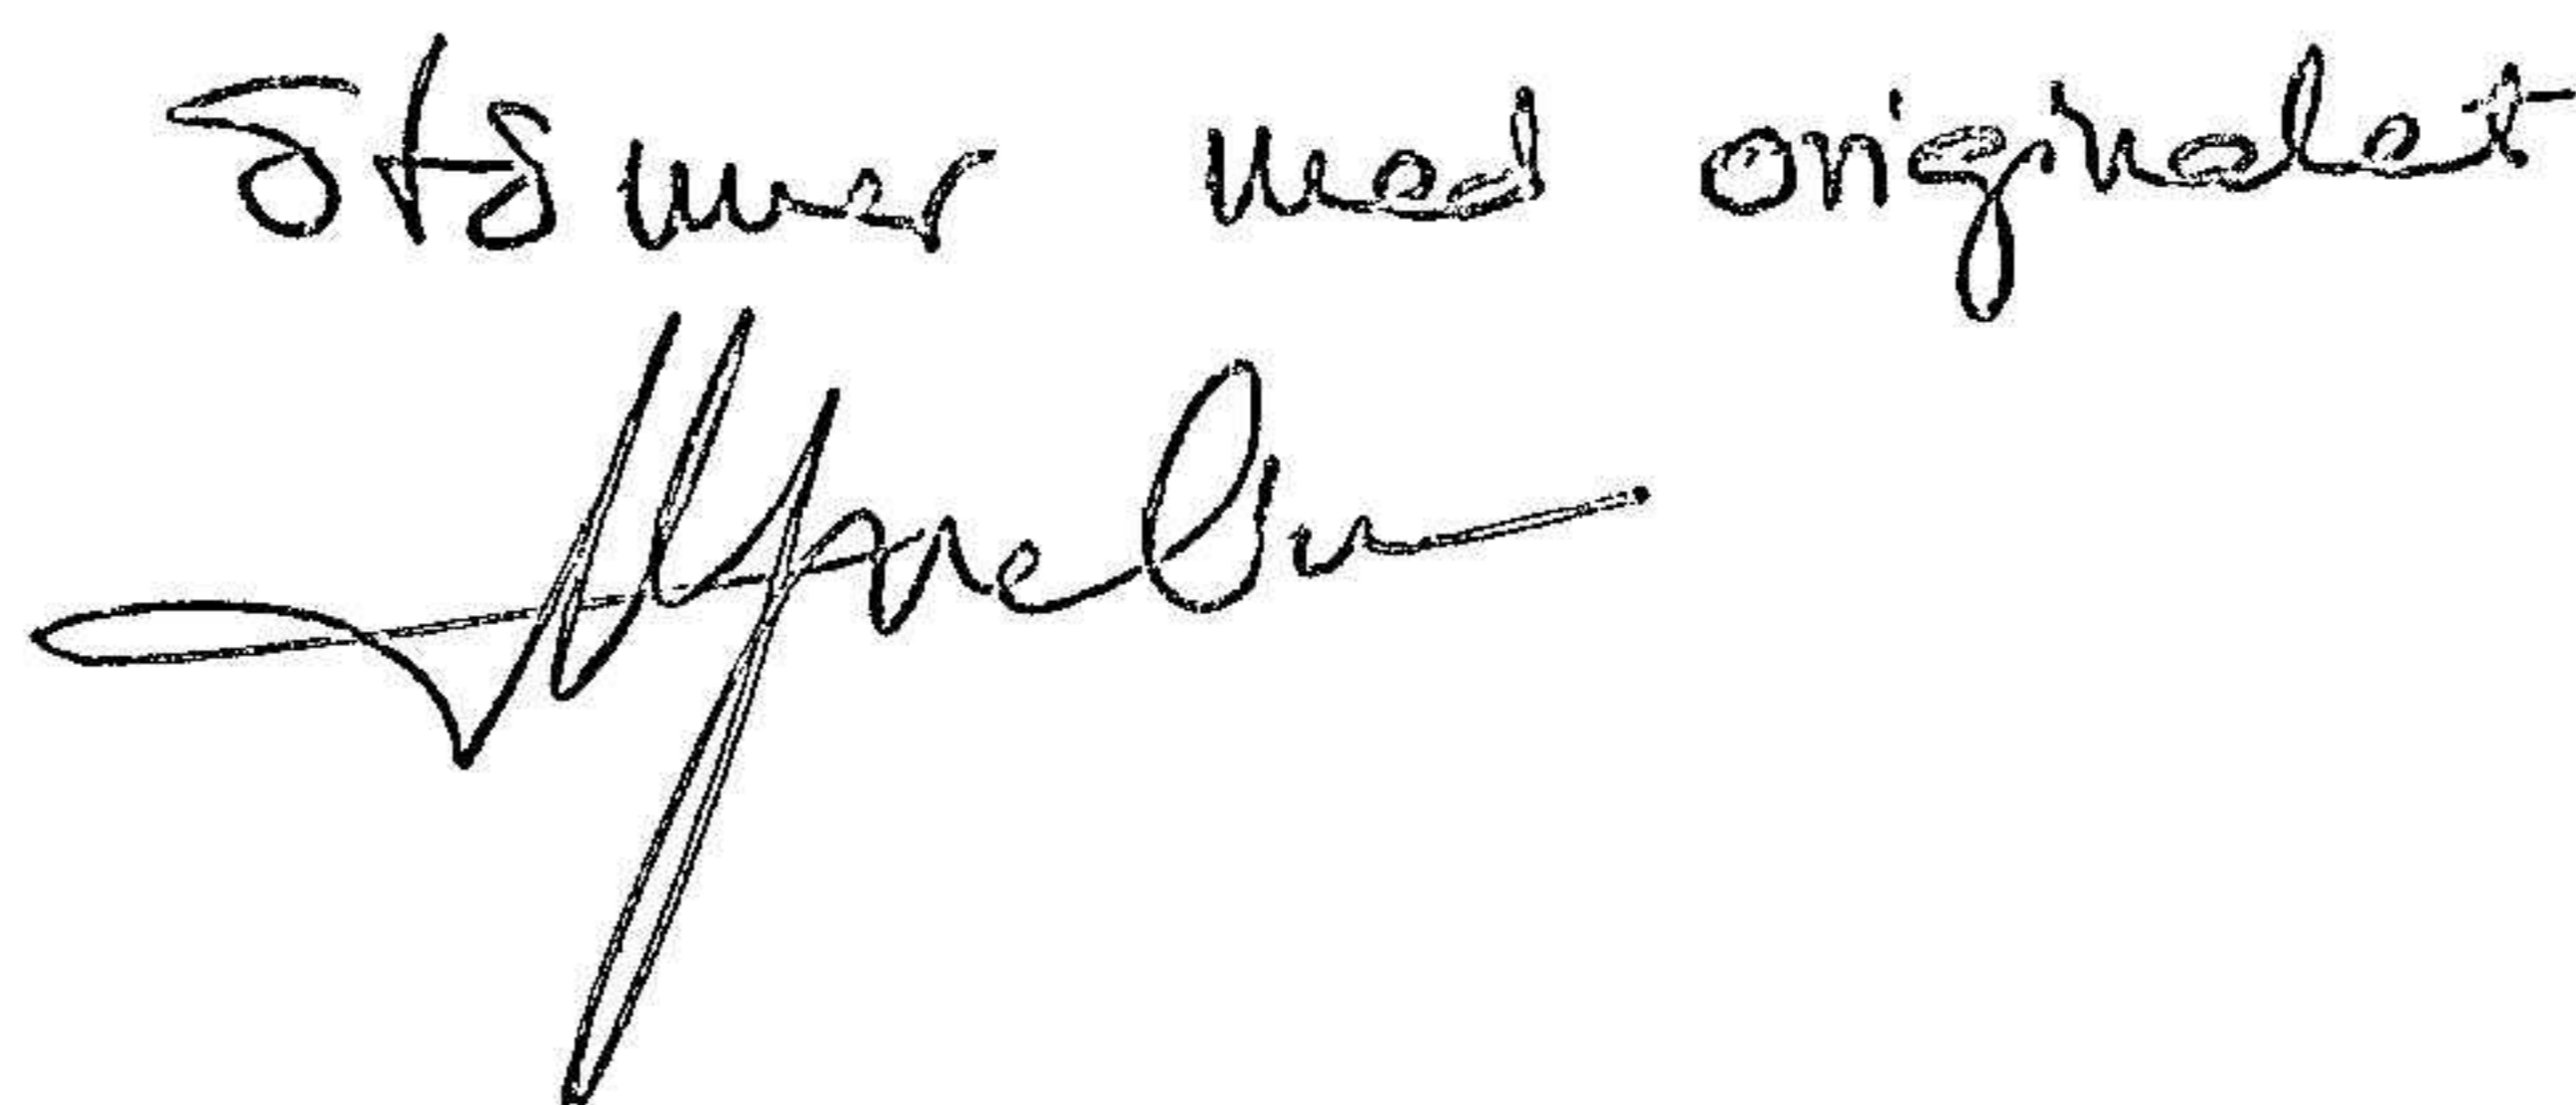 Stämmer med originalet